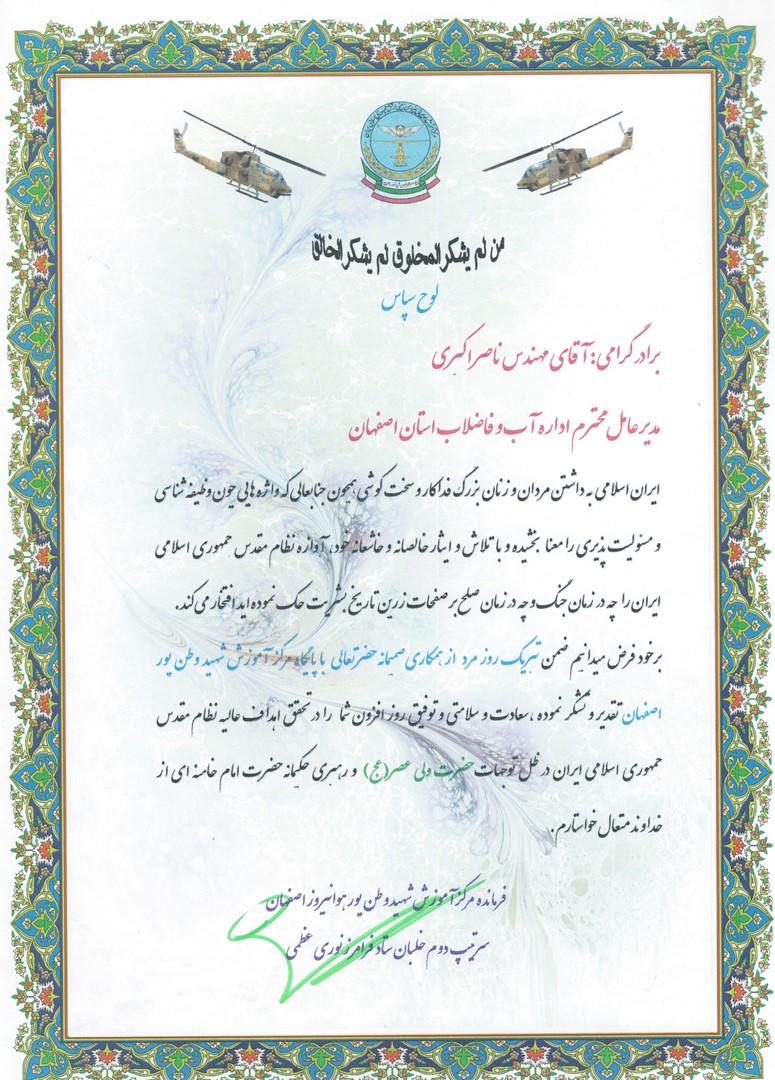 من لم یشکر المخلوق لم یشکر الخالق
لوح سپاس
برادر گرامی: آقای مهندس ناصر اکبری
مدیر عامل محترم اداره آب و فاضلاب استان اصفهان
ایران اسلامی به داشتن مردان و زنان بزرگ فداکار و سخت کوشی همچون جنابعالی که واژه هایی چون وظیفه شناسی
و مسئولیت پذیری را معنا بخشیده و با تلاش و ایثار خالصانه و خاشعانه خود، آوازه نظام مقدس جمهوری اسلامی
ایران را چه در زمان جنگ و چه در زمان صلح بر صفحات زرین تاریخ بشریت حک نموده اید افتخار می کند.
بر خود فرض میدانیم ضمن تبریک روز مرد از همکاری صمیمانه حضرتعالی با پایگاه مرکز آموزش شهید وطن پور
اصفهان تقدیر و تشکر نموده ، سعادت و سلامتی و توفیق روز افزون شما را در تحقق اهداف عالیه نظام مقدس
جمهوری اسلامی ایران در ظل توجهات حضرت ولی عصر(عج) و رهبری حکیمانه حضرت امام خامنه ای از
خداوند متعال خواستارم.
فرمانده مرکز آموزش شهید وطن پور هوانیروز اصفهان
سرتیپ دوم خلبان ستاد فرامرز نوری عظمی